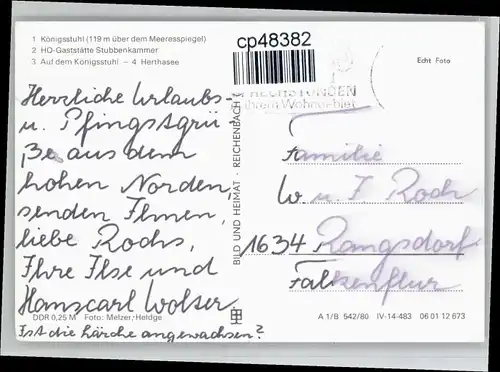 1 Königsstuhl (119 m über dem Meeresspiegel)
2 HO-Gaststätte Stubbenkammer
3 Auf dem Königsstuhl – 4 Herthasee
cp48382
Echt Foto
Herzliche Urlaubs-
u. Pfingstgrü-
ße aus dem
hohen Norden,
senden Ihnen,
liebe Rochs,
Ihre Ilse und
Hanscarl Wolter
Ist die Lärche angewachsen?
DDR 0,25 M Foto: Melzer, Heldge
BILD UND HEIMAT · REICHENBACH
ihrem Wohngebiet
Familie
W. u. I Roch
1634 Rangsdorf
Falkenflur
A 1/B 542/80 IV-14-483 06 01 12 673